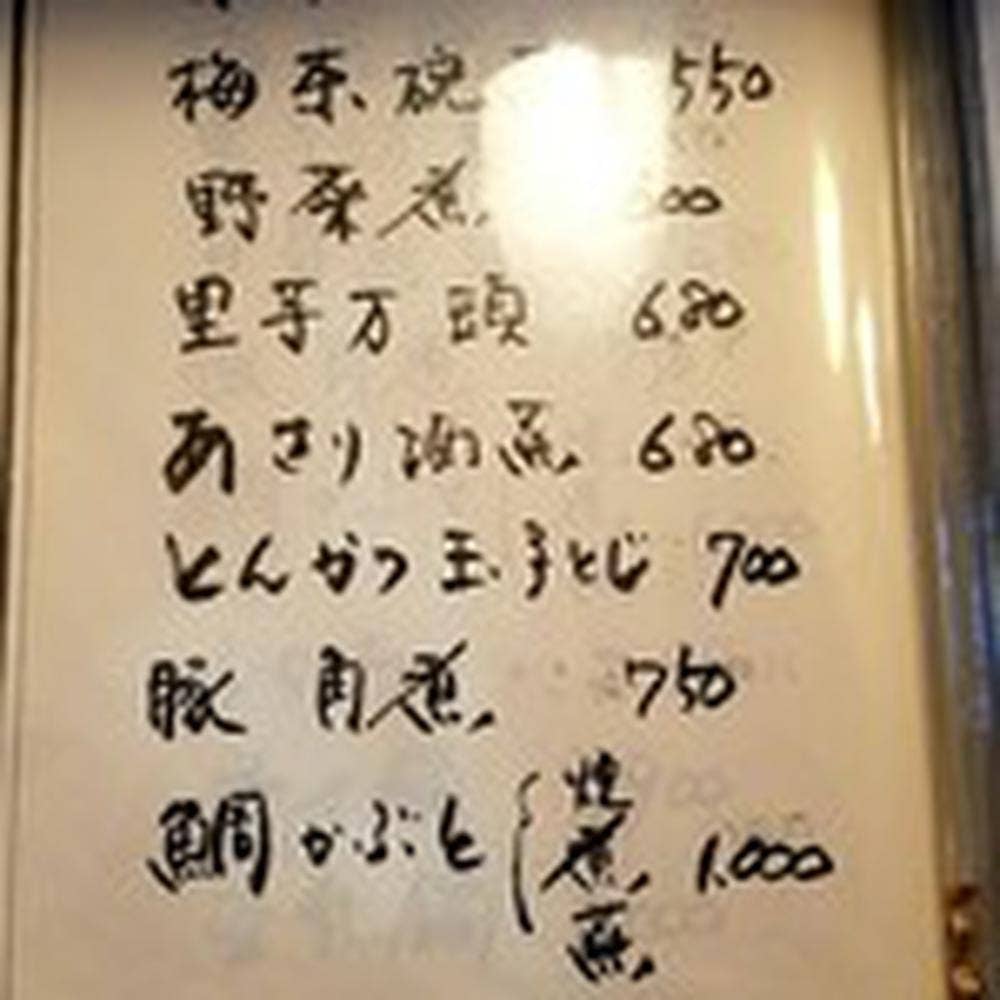 梅茶碗 550
野菜煮 00
里芋万頭 680
あさり油蒸 680
とんかつ玉子とじ 700
豚角煮 750
鯛かぶと 焼 煮 蒸 1.000